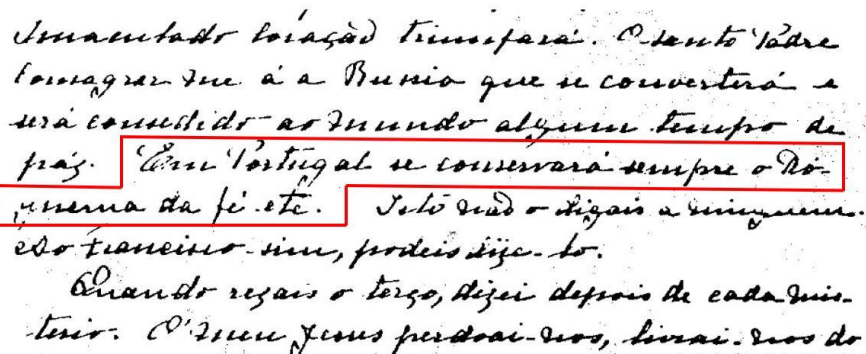 Imaculado Coração triunfará. O Santo Padre
consagrar-me á a Russia que se converterá e
será consedido ao mundo algum tempo de
páz. Em Portugal se conservará sempre o Dó-
gmema da fé etc. Isto não o digais a ninguem.
Ao Francisco sim, podeis dize-lo.
Quando rezais o terço, dizei depois de cada mis-
terio: O' meu Jesus perdoai-nos, livrai-nos do